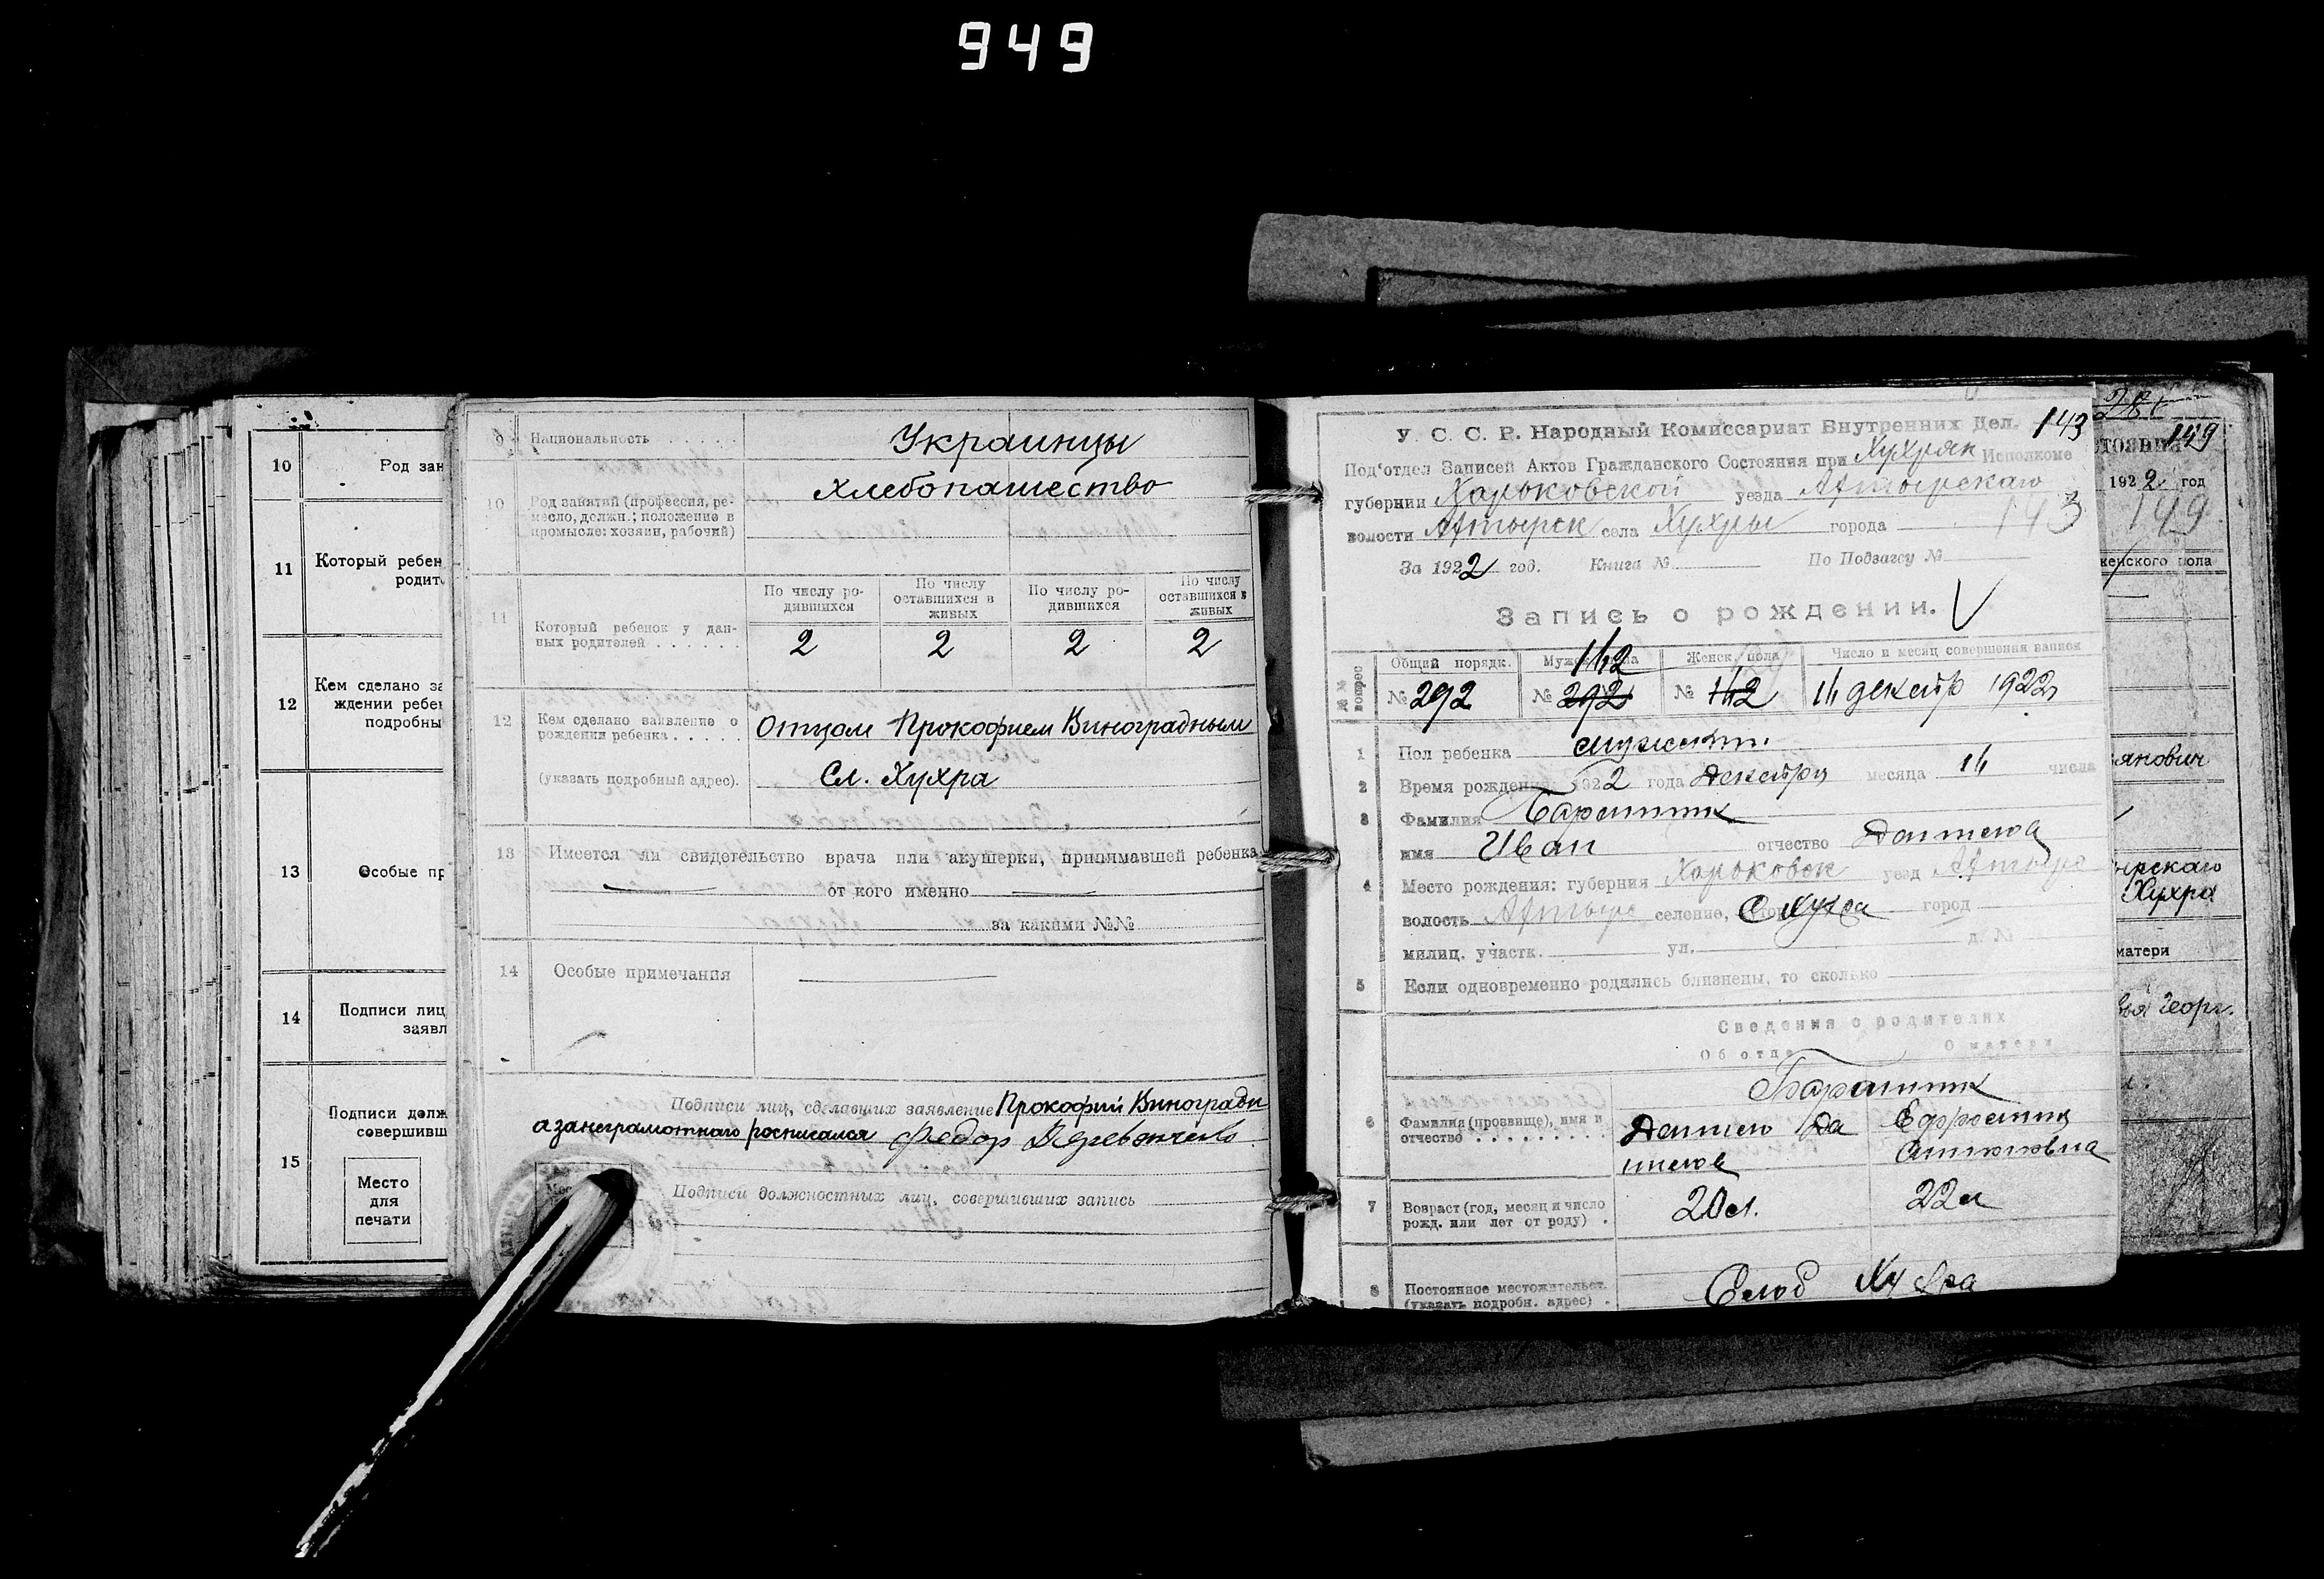 949
10 Род зан
11 Который ребен
родите
12 Кем сделано за
ждении ребен
подробны
13 Особые пр
14 Подписи лиц
заявл
15 Подписи долж
совершивш
Место
для
печати
9 Национальность Украинцы
10 Род занятий (профессия, ре-
месло, должн.; положение в
промысле: хозяин, рабочий)
Хлебопашество
11 Который ребенок у дан-
ных родителей
По числу ро-
дившихся
По числу
оставшихся в
живых
По числу ро-
дившихся
По числу
оставшихся в
живых
2 2 2 2
12 Кем сделано заявление о
рождении ребенка
Отцом Прокофием Виноградным
(указать подробный адрес). Сл. Хухра
13 Имеется ли свидетельство врача или акушерки, принимавшей ребенка
от кого именно
за какими №№
14 Особые примечания
Подписи лиц, сделавших заявление Прокофий Виноградн
а занеграмотнаго росписался Федор
Подписи должностных лиц, совершивших запись
У. С. С. Р. Народный Комиссариат Внутренних Дел. 143
Под'отдел Записей Актов Гражданского Состояния при Хухрян Исполкоме
губернии Харьковской уезда Ахтырскаго
волости Ахтырск села Хухры города 143
За 1922 год. Книга № По Подзагсу №
Запись о рождении.
№№ вопрос
Общий порядк. Мужск. пола Женск. пола Число и месяц совершения записи
142
№ 292 № 292 № 142 14 декабр 1922
1 Пол ребенка мужеск
2 Время рождения 1922 года Декабря месяца 14 числа
3 Фамилия
имя Иван отчество
4 Место рождения: губерния Харьковск уезд Ахтырс
волость Ахтырс селение, С Хухра город
милиц. участк. ул. д. №
5 Если одновременно родились близнецы, то сколько
Сведения о родителях
Об отце О матери
6 Фамилия (прозвище), имя и
отчество
Антоновна
7 Возраст (год, месяц и число
рожд. или лет от роду)
20 л. 22 л
8 Постоянное местожительст.
(указать подробн. адрес)
Слоб Хухра
149
стояния
1922 год
149
женского пола
янович
ырскаго
Хухра
матери
Георг.